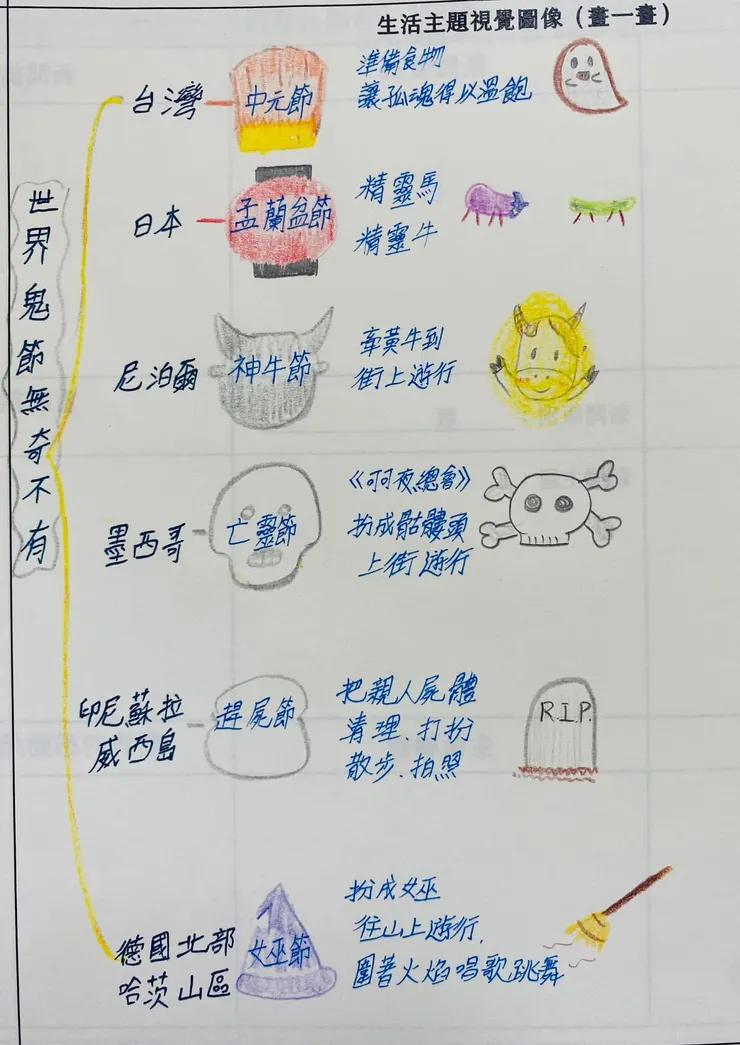 生活主題視覺圖像（畫一畫）
世界鬼節無奇不有
台灣
中元節
準備食物
讓孤魂得以溫飽
日本
孟蘭盆節
精靈馬
精靈牛
尼泊爾
神牛節
牽黃牛到
街上遊行
墨西哥
亡靈節
《可可夜總會》
扮成骷髏頭
上街遊行
印尼蘇拉
威西島
趕屍節
把親人屍體
清理、打扮
散步、拍照
R.I.P.
德國北部
哈茨山區
女巫節
扮成女巫
往山上遊行，
圍著火焰唱歌跳舞